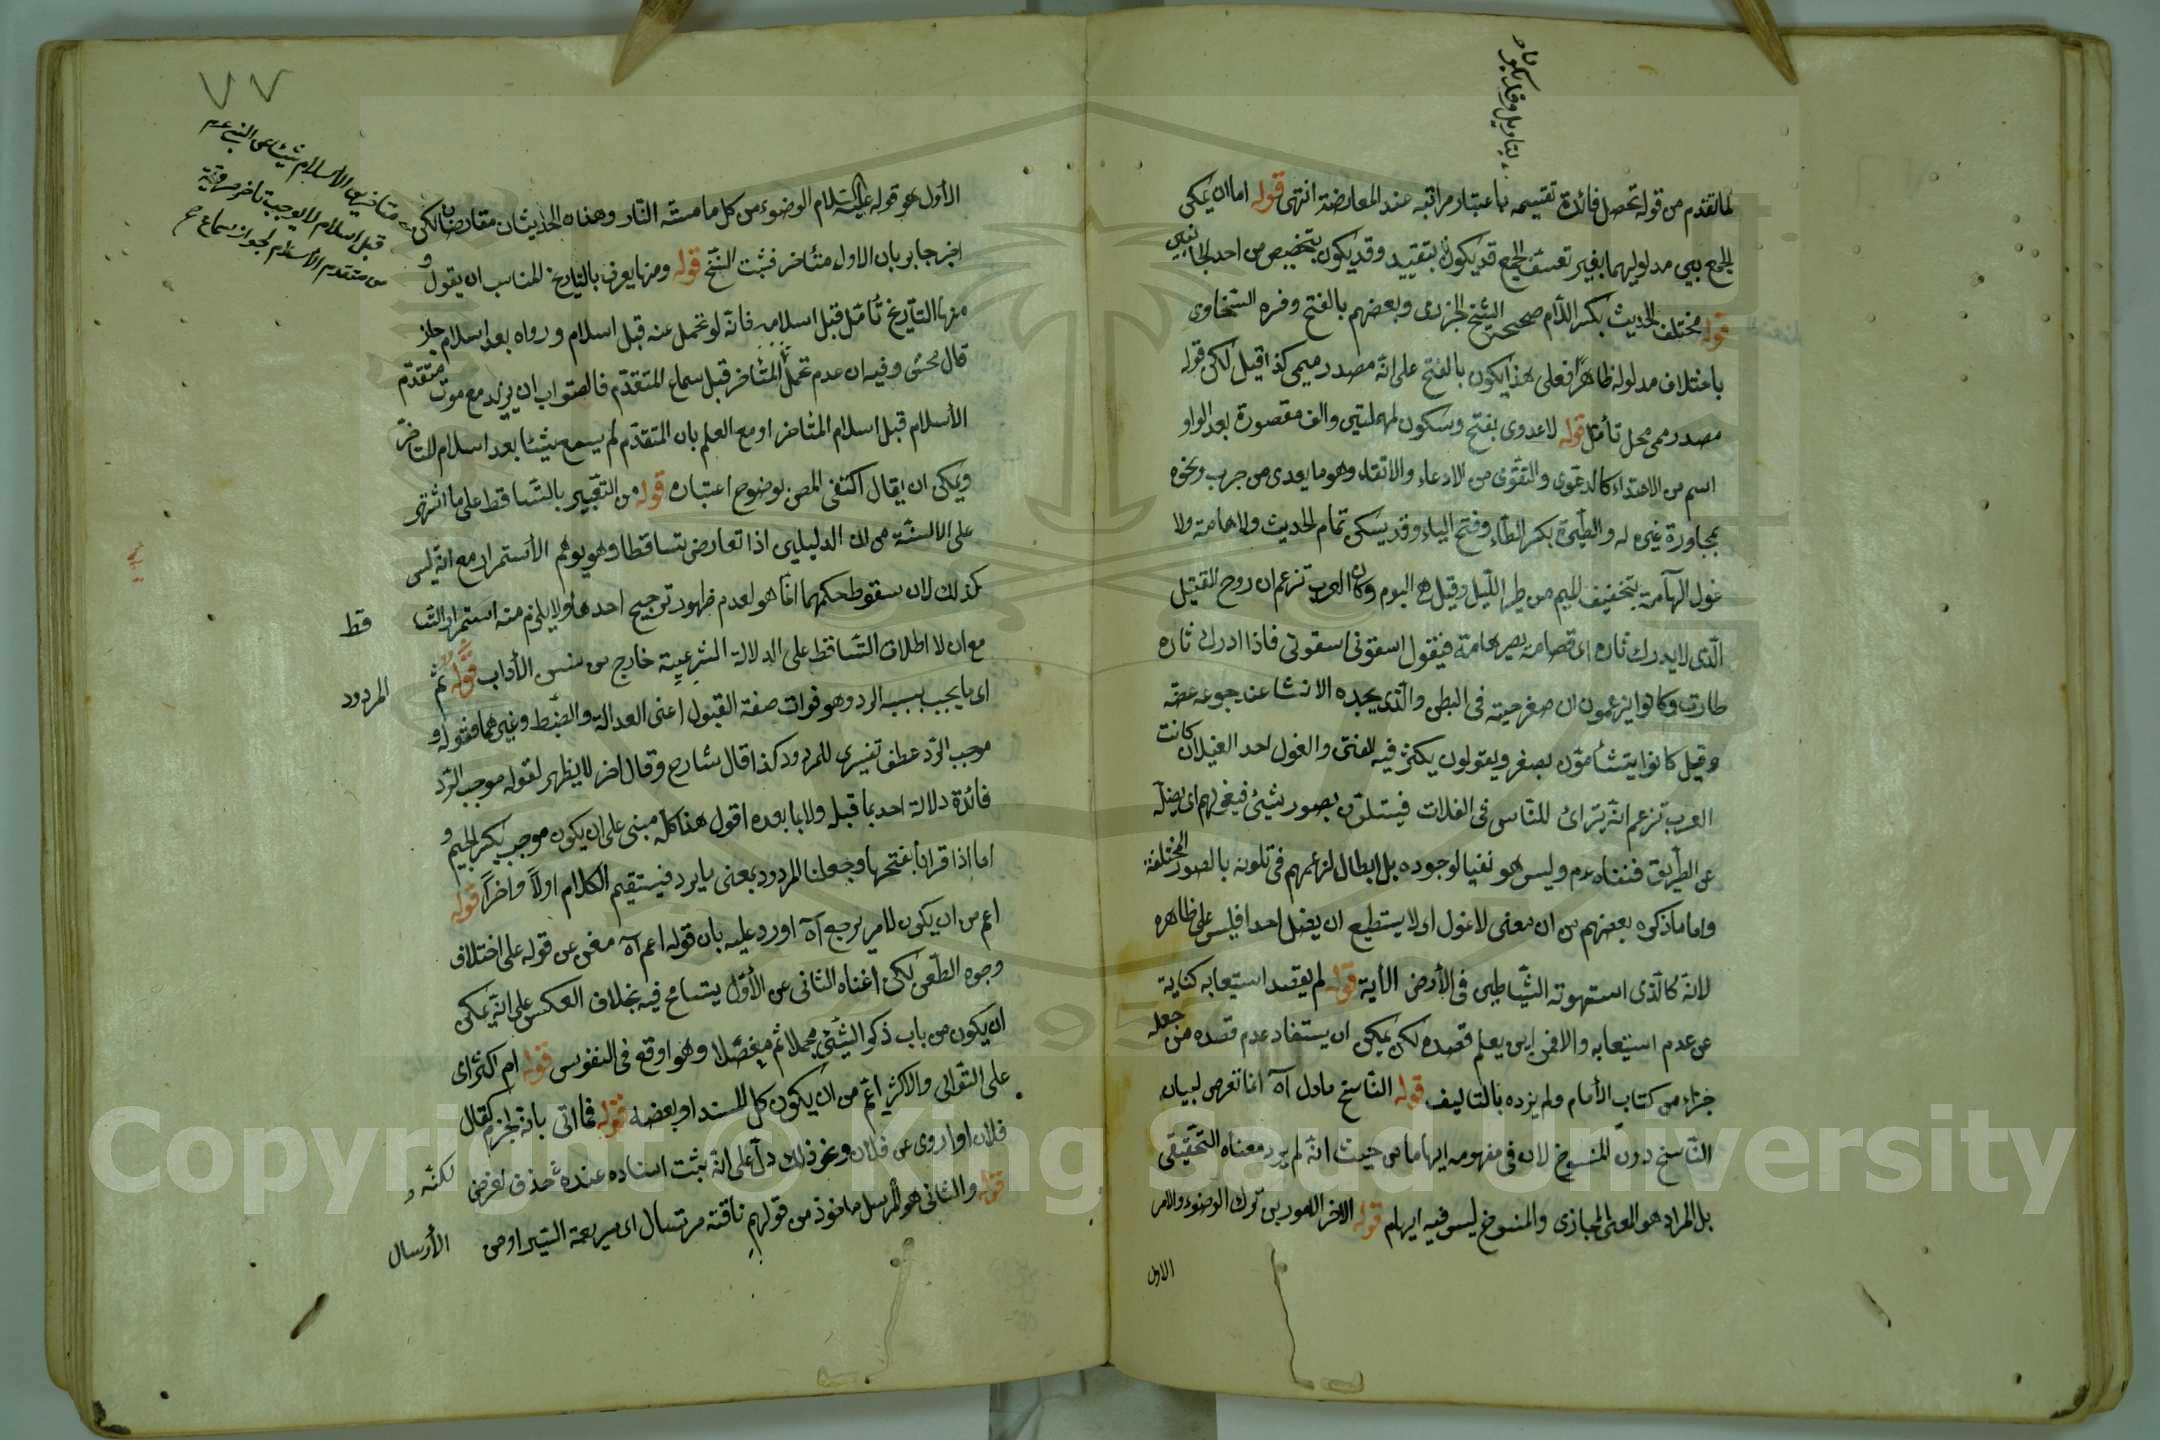 لما تقدم من قوله تحصل فائدة تقسيمه باعتبار مراتبه عند المعارضة انتهى قوله اما ان يمكن
الجمع بين مدلوليهما بغير تعسف الجمع قد يكون بتقييد وقد يكون بتخصيص من احد الجانبين
بتاويل وقد يكون
قوله مختلف الحديث بكسر اللام صححه الشيخ الجزري وبعضهم بالفتح وفره السخاوي
باختلاف مدلوله ظاهرا فعلى هذا يكون بالفتح على انه مصدر ميمي كذا قيل لكن قوله
مصدر ميمي محل تأمل قوله لا عدوى بفتح وسكون المهملتين والف مقصورة بعد الواو
اسم من الاعتداء كالدعوى والتقوى من الادعاء والاتقاء وهو ما يعدى من جرب ونحوه
بمجاورة غيره له والطيرة بكسر الطاء وفتح الياء وقد يسكن تمام الحديث ولا هامة ولا
غول الهامة بتخفيف الميم من طير الليل وقيل هي البوم وكان العرب تزعم ان روح القتيل
الذي لا يدرك ثاره اي قصاصه يصير هامة فيقول اسقوني اسقوني فاذا ادرك ثاره
طارت وكانوا يزعمون ان صفر حية في البطن والذي يجده الانسان عند جوعه عضه
وقيل كانوا يتشأمون بصفر ويقولون يكثر فيه الفتن والغول احد الغيلان كانت
العرب تزعم انه يتراى للناس في الفلات فيتلون بصور شتى فيغولهم اي يضله
عن الطريق فنفاه عم وليس هو نفيا لوجوده بل ابطال لزعمهم في تلونه بالصور المختلفة
واما ما ذكره بعضهم من ان معنى لا غول اي لا يستطيع ان يضل احدا فليس على ظاهره
لانه كالذي استهوته الشياطين في الأرض الآية قوله لم يقصد استيعابه كناية
عن عدم استيعابه والا فمن اين يعلم قصده لكن يمكن ان يستفاد عدم قصده من جعله
جزاء من كتاب الأمام ولم يزده بالتاليف قوله الناسخ مادل آه انما تعرض لبيان
الناسخ دون المنسوخ لان في مفهومه ايهاما من حيث انه لم يرد معناه التحقيقي
بل المراد هو المعنى المجازي والمنسوخ ليس فيه ايهام قوله الاخر الامور من ترك الوضوء والامر
الاول
٧٧
الأول هو قوله عليه السلام الوضوء من كل ما مسته النار وهذان الحديثان متعارضان لكن
اخبر جابر بان الاول متأخر فثبت النسخ قوله ومنها يعرف بالتاريخ المناسب ان يقول و
منها التاريخ تأمل قبل اسلامه فانه لو تحمل عنه قبل اسلام ورواه بعد اسلام جاز
قال محشى وفيه ان عدم تحمل المتأخر قبل سماع المتقدم فالصواب ان يزيد مع موت متقدم
الأسلام قبل اسلام المتأخر او مع العلم بان المتقدم لم يسمع شيئا بعد اسلام المتأخر
ويمكن ان يقال اكتفى المص لوضوح اعتباره قوله من التعبير بالتساقط على ما اشتهر
على الالسنة من ان الدليلين اذا تعارض تساقطا وهو يوهم الأستمرار مع انه ليس
كذلك لان سقوط حكمهما انما هو لعدم ظهور ترجيح احدهما ولا يلزم منه استمرار التسا
قط
مع ان لا اطلاق التساقط على الدلالة الشرعية خارج من سنن الأداب قوله ثم
المردود
اى ما يجب بسبب الرد وهو فوات صفة القبول اعنى العدالة والضبط وغيرهما فقوله و
موجب الرد عطف تفسيري للمردود كذا قال شارح وقال اخر لا يظهر لقوله موجب الرد
فائدة دلالة احد بما قبله ولا بما بعده اقول هذا كله مبنى على ان يكون موجب بكسر الجيم و
اما اذا قرأنا بفتحها وجعلنا المردود بمعنى ما يرد فيستقيم الكلام اولا واخرا قوله
اعم من ان يكون لامر يرجع آه اورد عليه بان قوله اعم آه مغن عن قوله على اختلاف
وجوه الطعن لكن اغناه الثاني عن الأول يتسامح فيه بخلاف العكس على انه يمكن
ان يكون من باب ذكر الشيئ مجملا ثم مفصلا وهو اوقع في النفوس قوله ام اكثر اى
على التوالى والاكثر اعم من ان يكون كل السند او بعضه قوله فما اتى بانه لجزم كقال
فلان او اروى عن فلان ونحو ذلك دل على انه يثبت اسناده عنده حذف لغرض لكنه و
قوله والثاني هو المرسل ماخوذ من قولهم ناقة مرسال اى سريعة السير او من الأرسال
متاخري الأسلام شيئا عن النبي عم
قبل اسلام لا يوجب تاخر مروية
من متقدم الأسلام لجواز سماع
Copyright © King Saud University